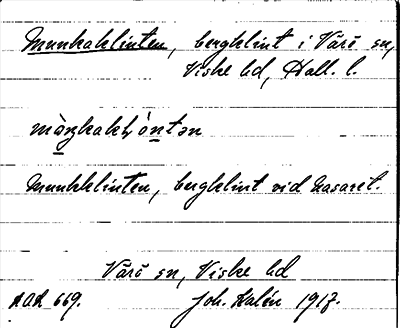 Munkaklinten, bergklint i Värö sn,
Viske hd, Hall. l.
Munkklinten, bergklint vid Nasaret.
Värö sn, Viske hd
669. Joh. Kalén 1917.